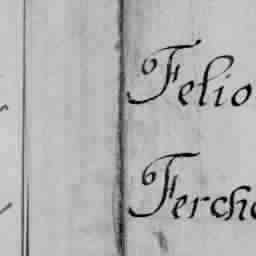 Felio
Fercho